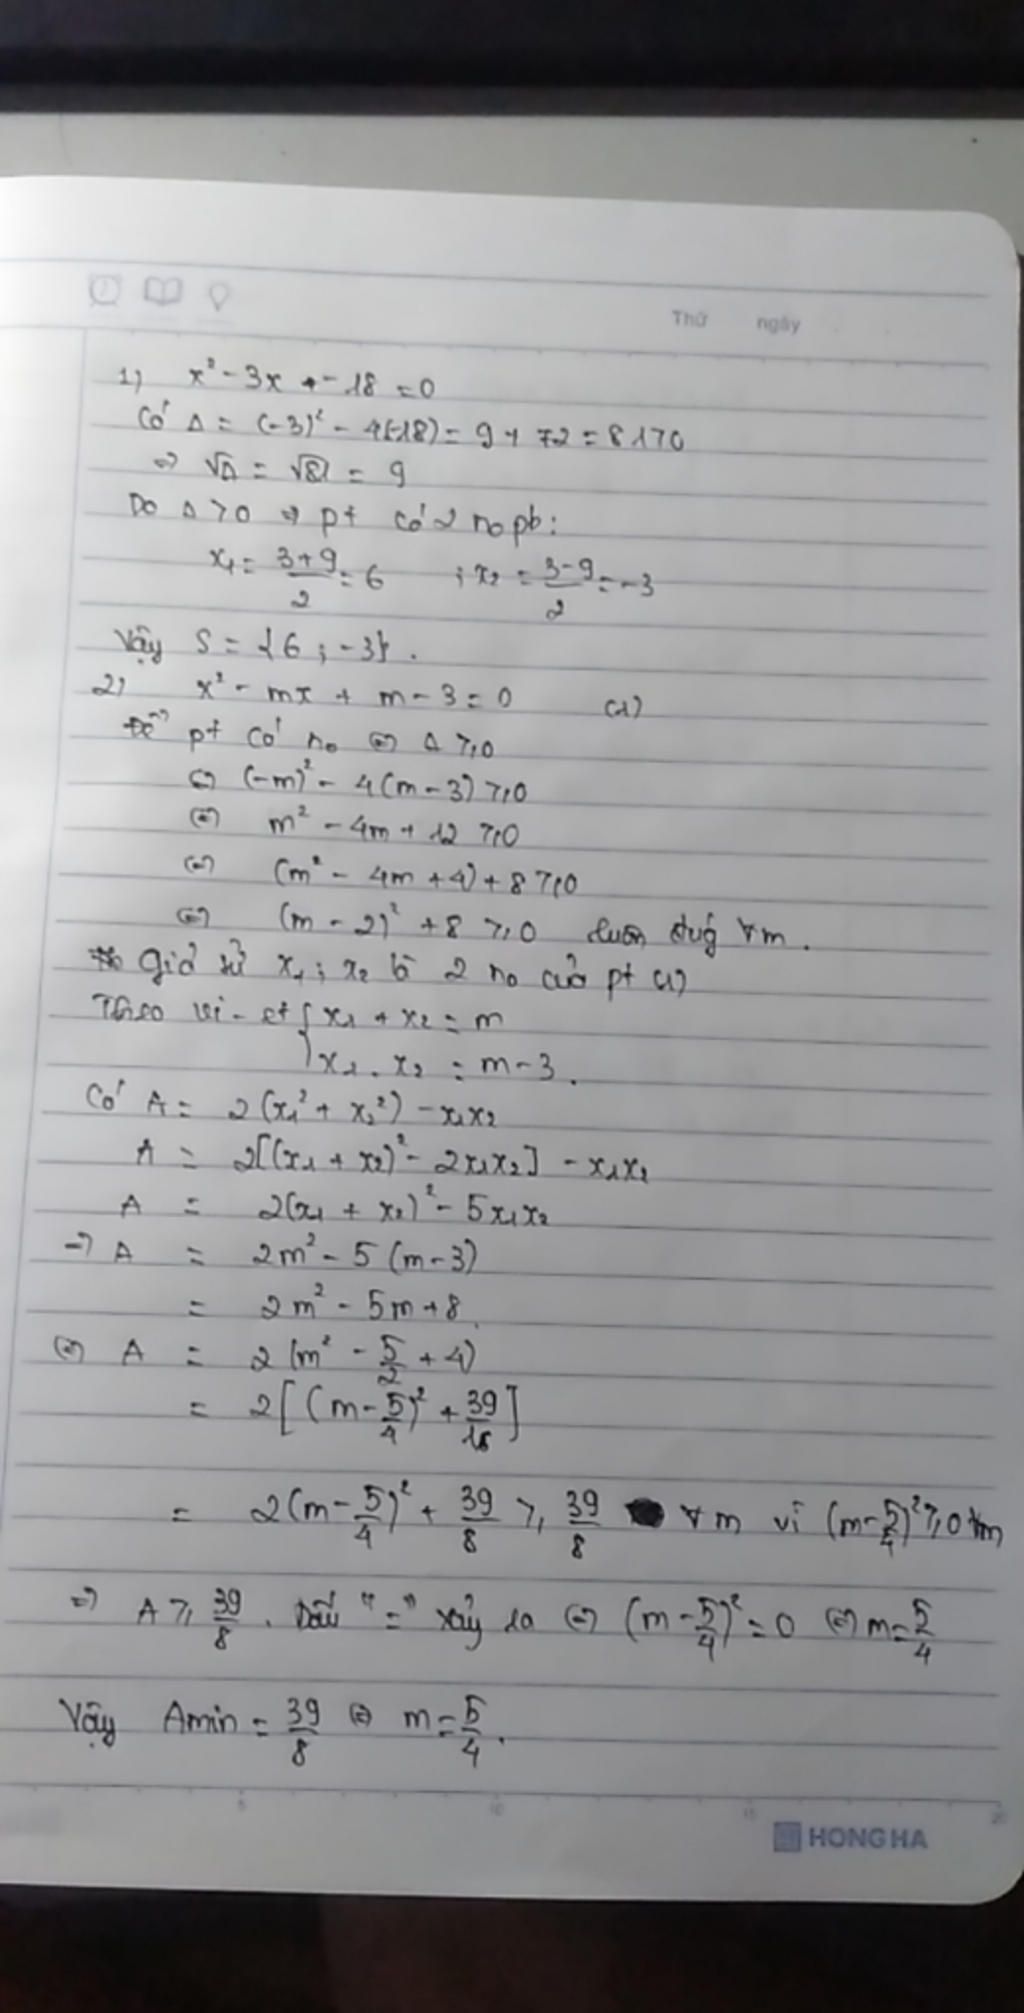 Thứ ngày
1) x² - 3x + - 18 = 0
Có Δ = (-3)² - 4(-18) = 9 + 72 = 81 > 0
⇒ √Δ = √81 = 9
Do Δ > 0 ⇒ pt có 2 no pb:
x₁ = (3+9)/2 = 6 ; x₂ = (3-9)/2 = -3
Vậy S = {6 ; -3}.
2) x² - mx + m - 3 = 0 (1)
Để pt có no ⇔ Δ ≥ 0
⇔ (-m)² - 4(m - 3) ≥ 0
⇔ m² - 4m + 12 ≥ 0
⇔ (m² - 4m + 4) + 8 ≥ 0
⇔ (m - 2)² + 8 ≥ 0 luôn đúg ∀m.
Giả sử x₁ ; x₂ là 2 no của pt (1)
Theo vi-et { x₁ + x₂ = m
x₁ . x₂ = m - 3.
Có A = 2(x₁² + x₂²) - x₁x₂
A = 2[(x₁ + x₂)² - 2x₁x₂] - x₁x₂
A = 2(x₁ + x₂)² - 5x₁x₂
⇒ A = 2m² - 5(m - 3)
= 2m² - 5m + 8.
⇔ A = 2(m² - 5/2 + 4)
= 2[(m - 5/4)² + 39/16]
= 2(m - 5/4)² + 39/8 ≥ 39/8 ∀m vì (m - 5/4)² ≥ 0 ∀m
⇒ A ≥ 39/8. Dấu "=" xảy ra ⇔ (m - 5/4)² = 0 ⇔ m = 5/4
Vậy Amin = 39/8 ⇔ m = 5/4.
5 10 15 20
HONG HA